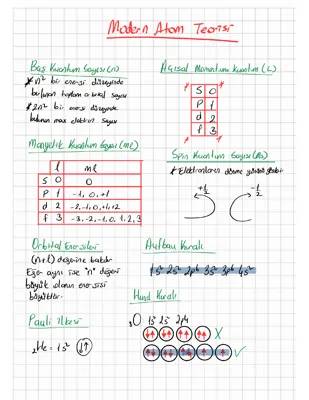 Modern Atom Teorisi
Baş Kuantum Sayısı (n)
* n² bir enerji düzeyinde
bulunan toplam orbital sayısı
* 2n² bir enerji düzeyinde
bulunan max elektron sayısı
Açısal Momentum Kuantum (L)
S 0
P 1
d 2
f 3
Manyetik Kuantum Sayısı (ml)
l ml
S 0 0
P 1 -1, 0, +1
d 2 -2, -1, 0, +1, +2
f 3 -3, -2, -1, 0, 1, 2, 3
Spin Kuantum Sayısı (Ms)
* Elektronların dönme yönünü gösterir
+1/2 -1/2
Orbital Enerjileri
(n+l) değerine bakılır
Eğer aynı ise "n" değeri
büyük olanın enerjisi
büyüktür.
Aufbau Kuralı
1s² 2s² 2p⁶ 3s² 3p⁶ 4s²
Hund Kuralı
₈O 1s² 2s² 2p⁴
X
✓
Pauli İlkesi
₂He = 1s²